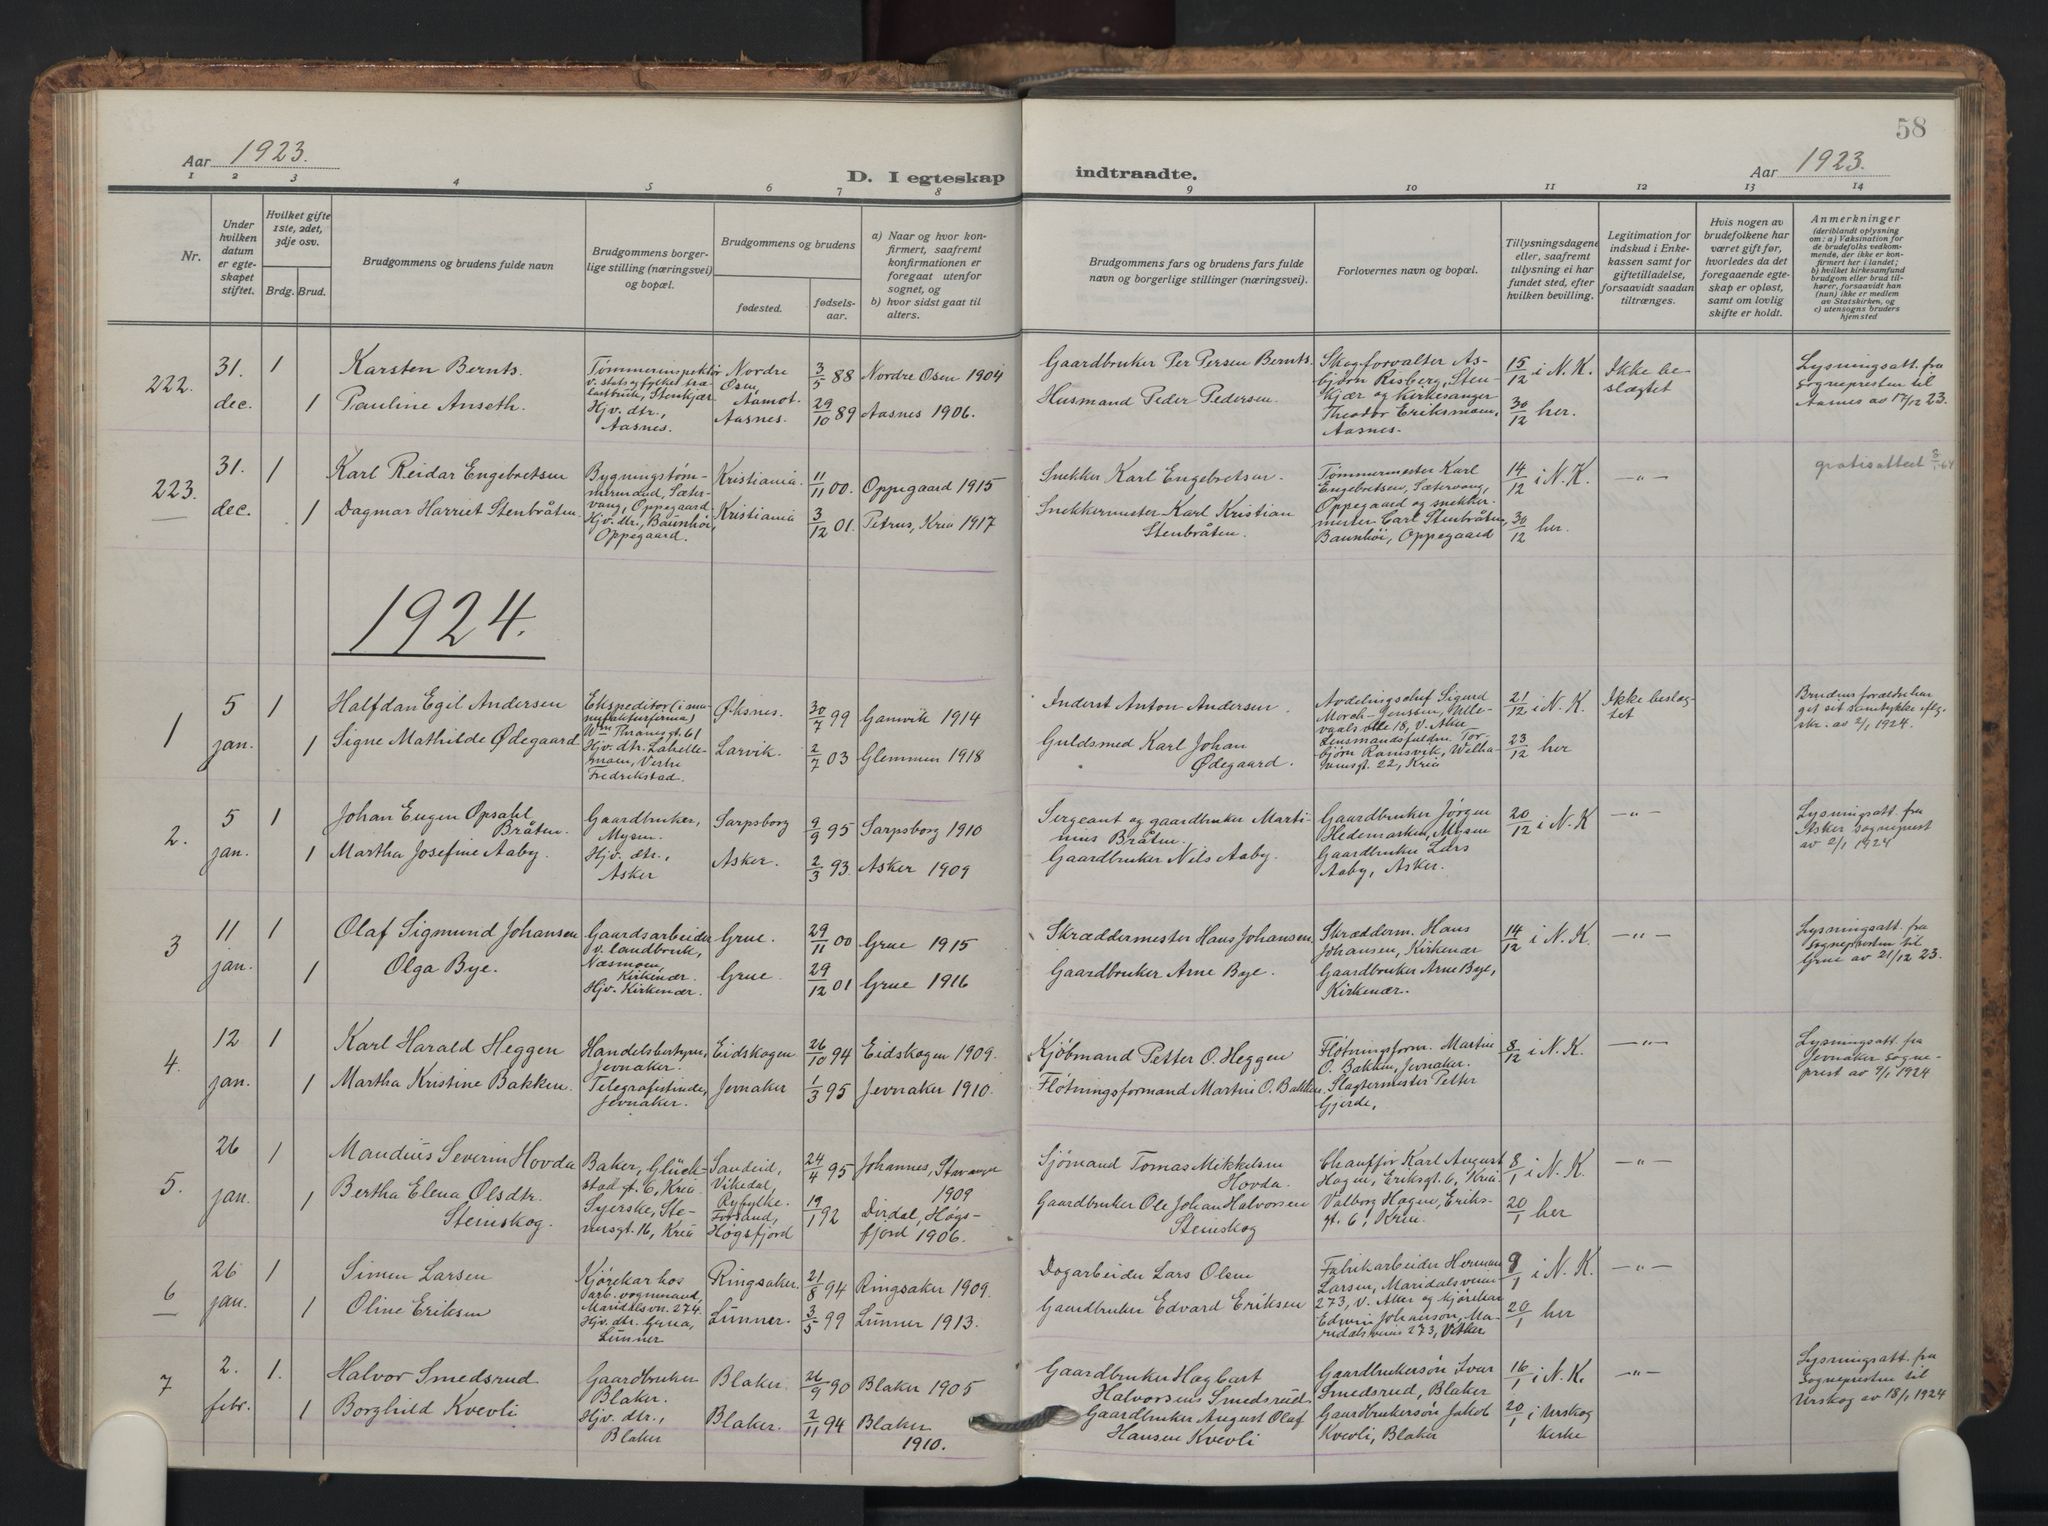 58
Aar 1923.
D. I egteskap indtraadte.
Aar 1923.
1 2 3 4 5 6 7 8 9 10 11 12 13 14
Nr.
Under hvilken datum er egte-skapet stiftet.
Hvilket gifte 1ste, 2det, 3dje osv.
Brdg. Brud.
Brudgommens og brudens fulde navn
Brudgommens borger-lige stilling (næringsvei) og bopæl.
Brudgommens og brudens
fødested.
fødsels-aar.
a) Naar og hvor kon-firmert, saafremt konfirmationen er foregaat utenfor sognet, og
b) hvor sidst gaat til alters.
Brudgommens fars og brudens fars fulde navn og borgerlige stillinger (næringsvei).
Forlovernes navn og bopæl.
Tillysningsdagene eller, saafremt tillysning ei har fundet sted, efter hvilken bevilling.
Legitimation for indskud i Enke-kassen samt for giftetilladelse, forsaavidt saadan tiltrænges.
Hvis nogen av brudefolkene har været gift før, hvorledes da det foregaaende egte-skap er opløst, samt om lovlig skifte er holdt.
Anmerkninger
(deriblandt oplysning om: a) Vaksination for de brudefolks vedkom-mende, der ikke er kon-firmert her i landet; b) hvilket kirkesamfund brudgom eller brud til-hører, forsaavidt han (hun) ikke er medlem av Statskirken, og c) utensogns bruders hjemsted
222. 31. dec. 1 Karsten Bernts. Tømmerinspektør v. stats og folket træ-lastbruk, Stenkjær Nordre Osen, Aamot. 3/5 88 Nordre Osen 1904 Gaardbruker Per Persen Bernts. Skogforvalter As-bjørn Risberg, Sten-kjær og kirkesanger Theodor Eriksmoen, Aasnes. 15/12 i N. K. Ikke be-slægtet Lysningsatt. fra Sognepresten til Aasnes av 17/12 23.
1 Pauline Anseth. Hjv. dtr., Aasnes. Aasnes. 29/10 89 Aasnes 1906. Husmand Peder Pedersen. 30/12 her.
223. 31. dec. 1 Karl Reidar Engebretsen Bygningstøm-mermand, Sæter-vang, Oppegaard Kristiania 11/11 00. Oppegaard 1915 Snekker Karl Engebretsen. Tømmermester Karl Engebretsen, Sætervang, Oppegaard og snekker-mester Carl Stenbråten, Baunhöi, Oppegaard 14/12 i N. K. -"- gratisattest
1 Dagmar Harriet Stenbråten. Hjv. dtr., Baunhöi, Oppegaard. Kristiania 3/12 01. Petrus, Kria 1917 Snekkermester Karl Kristian Stenbråten. 30/12 her.
1924.
1 5 jan. 1 Halfdan Egil Andersen Ekspeditør (i ma-nufakturfirma) Wm Thranesgt. 61 Øksnes. 30/7 99 Gamvik 1914 Inderst Anton Andersen. Avdelingschef Sigurd Morch-Jenssen, Ulle-vaals alle 18, V. Aker 21/12 i N. K. Ikke beslæg-tet Brudens forældre har get sit samtykke eflg. skr. av 2/1 1924.
1 Signe Mathilde Ødegaard Hjv. dtr. Labelle-moen, Vestre Fredrikstad. Larvik. 2/7 03 Glemmen 1918 Guldsmed Karl Johan Ødegaard. Lensmandsfuldm. Tor-bjørn Ramsvik, Welha-vensgt. 22, Kria 23/12 her
2. 5 jan. 1 Johan Eugen Opsahl Bråten. Gaardbruker, Mysen. Sarpsborg 9/9 95 Sarpsborg 1910 Sergeant og gaardbruker Marti-nius Bråten. Gaardbruker Jörgen Hedemarken, Mysen 20/12 i N. K -"- Lysningsatt. fra Asker sogneprest av 2/1 1924
1 Martha Josefine Aaby. Hjv. dtr., Asker Asker. 2/3 93. Asker 1909 Gaardbruker Nils Aaby. Gaardbruker Lars Aaby, Asker.
3 11 jan. 1 Olaf Sigmund Johansen Gaardsarbeider v. landbruk, Næsmoen, Kirkenær. Grue. 29/11 00 Grue 1915 Skræddermester Hans Johansen. Skrædderm. Hans Johansen, Kirkenær 14/12 i N. K. -"- Lysningsatt. fra Sognepresten til Grue av 21/12 23.
1 Olga Bye. Hjv. Kirkenær. Grue. 29/12 01 Grue 1916 Gaardbruker Arne Bye. Gaardbruker Arne Bye, Kirkenær.
4. 12 jan. 1 Karl Harald Heggen Handelsbestyrer, Jevnaker. Eidskogen 26/10 94 Eidskogen 1909. Kjöbmand Petter O. Heggen Flötningsform. Martin O. Bakken, Jevnaker. 8/12 i N. K. -"- Lysningsatt. fra Jevnaker sogne-prest av 9/1 1924
1 Martha Kristine Bakken. Telegrafistinde, Jevnaker. Jevnaker 1/3 95 Jevnaker 1910. Flötningsformand Martin O. Bakken. Slagtermester Petter Gjerde,
5. 26 jan. 1 Mandius Severin Hovda Baker, Glück-stad gt. 6, Kria. Sandeid, Vikedal, Ryfylke 24/4 95 Johannes, Stavanger 1909 Sjömand Tomas Mikkelsen Hovda. Chaufför Karl August Hagen, Eriksgt. 6, Kria. 8/1 i N. K. -"-
1 Bertha Elena Olsdtr. Steinskog. Syerske, Ste-nersgt. 16, Kria Forsand, Høgsfjord 19/1 92 Dirdal, Høgs-fjord 1906. Gaardbruker Ole Johan Halvorsen Steinskog Valborg Hagen, Eriks-gt. 6, Kria. 20/1 her
6 26 jan. 1 Simen Larsen Kjørekar hos arb. vognmand, Maridalsvn. 274. Ringsaker. 21/8 94 Ringsaker 1909. Dagarbeider Lars Olsen Fabrikarbeider Herman Larsen, Maridalsveien 273, V. Aker og kjørekar Edwin Johanson, Ma-ridalsveien 273, V. Aker 9/1 i N. K. -"-
1 Oline Eriksen Hjv. dtr. Grua, Lunner Lunner. 3/5 99 Lunner 1913. Gaardbruker Edvard Eriksen 20/1 her
7 2. febr. 1. Halvor Smedsrud Gaardbruker Blaker. Blaker. 26/9 90 Blaker 1905 Gaardbruker Hagbart Halvorsens Smedsrud Gaardbrukersön Ivar Smedsrud, Blaker 16/1 i N. K. -"- Lysningsatt. fra Sognepresten til Urskog av 18/1 1924
1 Borghild Kvevli Hjv. dtr., Blaker Blaker. 2/11 94 Blaker 1910. Gaardbruker August Olaf Hansen Kvevli Gaardbrukersön Jakob Kvevli, Blaker 20/1 i Urskog kirke